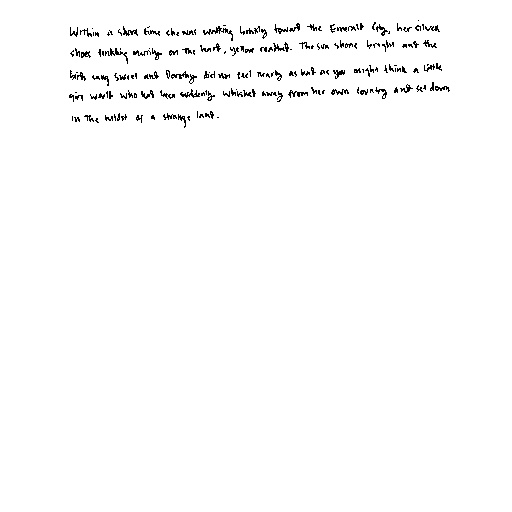 Within a short time she was walking briskly toward the Emerald City, her silver
shoes tinkling merrily on the hard, yellow roadbed. The sun shone bright and the
birds sang sweet and Dorothy did not feel nearly as bad as you might think a little
girl would who had been suddenly whisked away from her own country and set down
in the midst of a strange land.